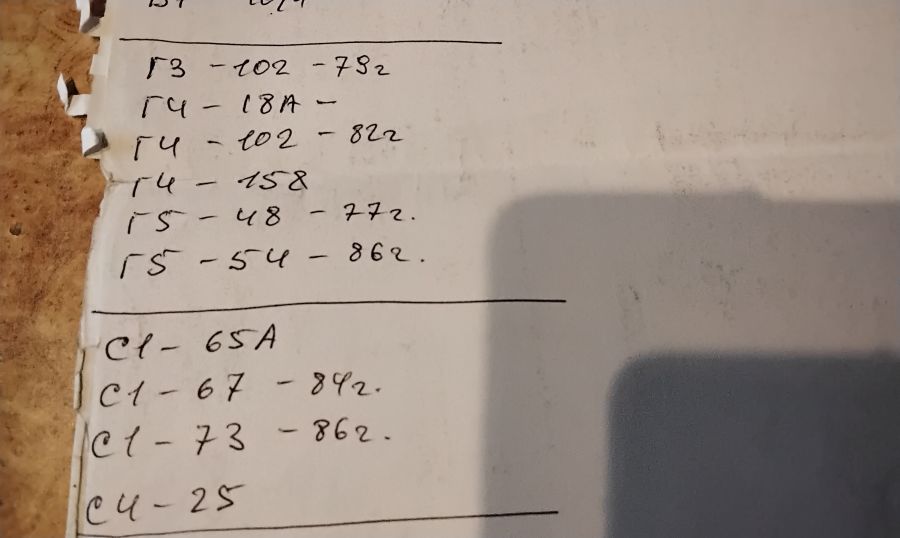 Г3 - 102 - 79г
Г4 - 18А -
Г4 - 102 - 82г
Г4 - 158
Г5 - 48 - 77г.
Г5 - 54 - 86г.
С1 - 65А
С1 - 67 - 84г.
С1 - 73 - 86г.
С4 - 25